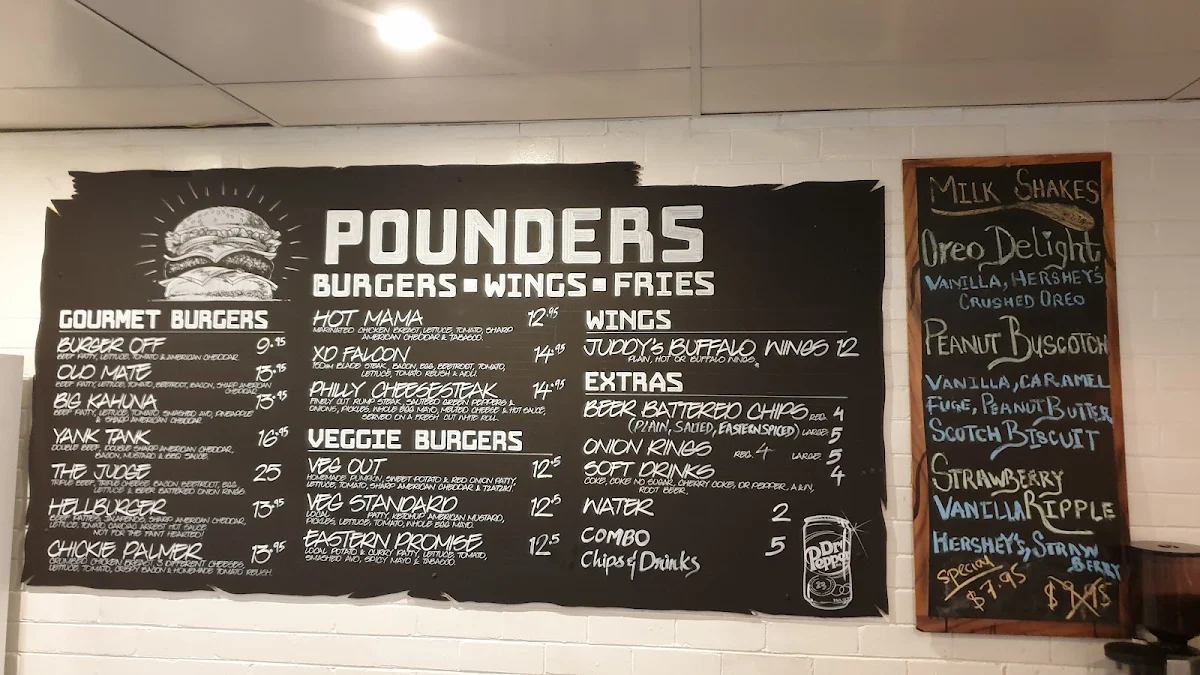 POUNDERS
BURGERS ▪ WINGS ▪ FRIES
GOURMET BURGERS
BURGER OFF 9.95
BEEF PATTY, LETTUCE, TOMATO & AMERICAN CHEDDAR
OLD MATE 13.95
BEEF PATTY, LETTUCE, TOMATO, BEETROOT, BACON, SHARP AMERICAN
CHEDDAR
BIG KAHUNA 13.95
BEEF PATTY, LETTUCE, TOMATO, SMASHED AVO, PINEAPPLE
& SHARP AMERICAN CHEDDAR
YANK TANK 16.95
DOUBLE BEEF, DOUBLE SHARP AMERICAN CHEDDAR,
BACON, MUSTARD & BBQ SAUCE.
THE JUDGE 25
TRIPLE BEEF, TRIPLE CHEESE, BACON, BEETROOT, EGG,
LETTUCE & BEER BATTERED ONION RINGS
HELLBURGER 13.95
JALAPENOS, SHARP AMERICAN CHEDDAR,
LETTUCE, TOMATO, CARDIAC ARREST HOT SAUCE
NOT FOR THE FAINT HEARTED!
CHICKIE PALMER 13.95
CRUMBED CHICKEN BREAST, 3 DIFFERENT CHEESES,
LETTUCE, TOMATO, CRISPY BACON & HOMEMADE TOMATO RELISH.
HOT MAMA 12.95
MARINATED CHICKEN BREAST, LETTUCE, TOMATO, SHARP
AMERICAN CHEDDAR & TABASCO.
XD FALCON 14.95
BLADE STEAK, BACON, EGG, BEETROOT, TOMATO,
LETTUCE, TOMATO RELISH & AIOLI.
PHILLY CHEESESTEAK 14.95
FINELY CUT RUMP STEAK, SAUTEED GREEN PEPPERS &
ONIONS, PICKLES, WHOLE EGG MAYO, MELTED CHEESE & HOT SAUCE,
SERVED ON A FRESH CUT WHITE ROLL.
VEGGIE BURGERS
VEG OUT 12.5
HOMEMADE PUMPKIN, SWEET POTATO & RED ONION PATTY,
LETTUCE, TOMATO, SHARP AMERICAN CHEDDAR & TZATZIKI.
VEG STANDARD 12.5
LOCAL PATTY, KETCHUP, AMERICAN MUSTARD,
PICKLES, LETTUCE, TOMATO, WHOLE EGG MAYO.
EASTERN PROMISE 12.5
LOCAL POTATO & CURRY PATTY, LETTUCE, TOMATO,
SMASHED AVO, SPICY MAYO & TABASCO.
WINGS
JUDDY'S BUFFALO WINGS 12
PLAIN, HOT OR BUFFALO WINGS.
EXTRAS
BEER BATTERED CHIPS REG. 4
(PLAIN, SALTED, EASTERN SPICED) LARGE: 5
ONION RINGS REG. 4 LARGE: 5
SOFT DRINKS 4
COKE, COKE NO SUGAR, CHERRY COKE, DR. PEPPER, A&W,
ROOT BEER.
WATER 2
COMBO 5
Chips & Drinks
Dr Pepper
23
MILK SHAKES
Oreo Delight
VANILLA, HERSHEY'S
CRUSHED OREO
PEANUT BUSCOTCH
VANILLA, CARAMEL
FUGE, PEANUT BUTTER
SCOTCH BISCUIT
STRAWBERRY
VANILLA RIPPLE
HERSHEY'S, STRAW
BERRY
special
$7.95